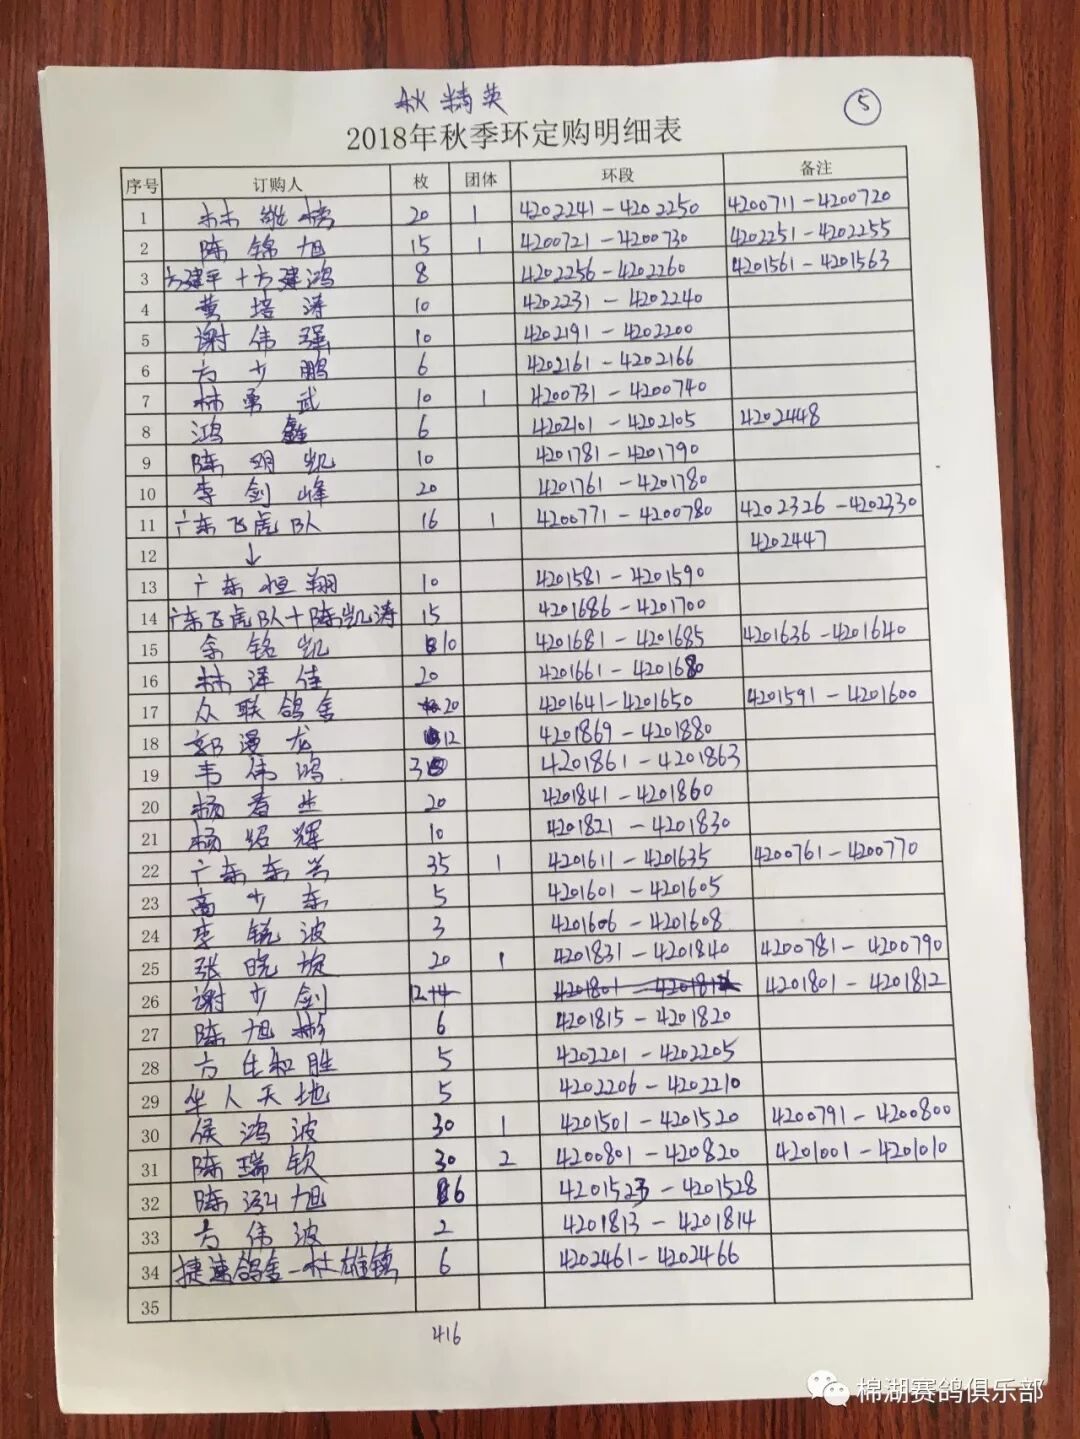 秋精英
⑤
2018年秋季环定购明细表
序号 订购人 枚 团体 环段 备注
1 林 榜 20 1 4202241-4202250 4200711-4200720
2 陈锦旭 15 1 4200721-4200730 4202251-4202255
3 方建平+方建鸿 8 4202256-4202260 4201561-4201563
4 黄培涛 10 4202231-4202240
5 谢伟强 10 4202191-4202200
6 方少鹏 6 4202161-4202166
7 林勇武 10 1 4200731-4200740
8 鸿鑫 6 4202101-4202105 4202448
9 陈 凯 10 4201781-4201790
10 李剑峰 20 4201761-4201780
11 广东飞虎队 16 1 4200771-4200780 4202326-4202330
12 ↓ 4202447
13 广东恒翔 10 4201581-4201590
14 广东飞虎队+陈凯涛 15 4201686-4201700
15 余铭凯 10 4201681-4201685 4201636-4201640
16 林泽佳 20 4201661-4201680
17 众联鸽舍 20 4201641-4201650 4201591-4201600
18 郭漫龙 12 4201869-4201880
19 韦伟鸿 3 4201861-4201863
20 杨 20 4201841-4201860
21 杨绍辉 10 4201821-4201830
22 广东东兴 35 1 4201611-4201635 4200761-4200770
23 高少东 5 4201601-4201605
24 李锐波 3 4201606-4201608
25 张晓旋 20 1 4201831-4201840 4200781-4200790
26 谢少剑 12 4201801-4201812
27 陈旭彬 6 4201815-4201820
28 方生和胜 5 4202201-4202205
29 华人天地 5 4202206-4202210
30 侯鸿波 30 1 4201501-4201520 4200791-4200800
31 陈瑞钦 30 2 4200801-420820 4201001-4201010
32 陈 旭 6 4201523-4201528
33 方伟波 2 4201813-4201814
34 捷速鸽舍-杜雄镇 6 4202461-4202466
35
416
棉湖赛鸽俱乐部